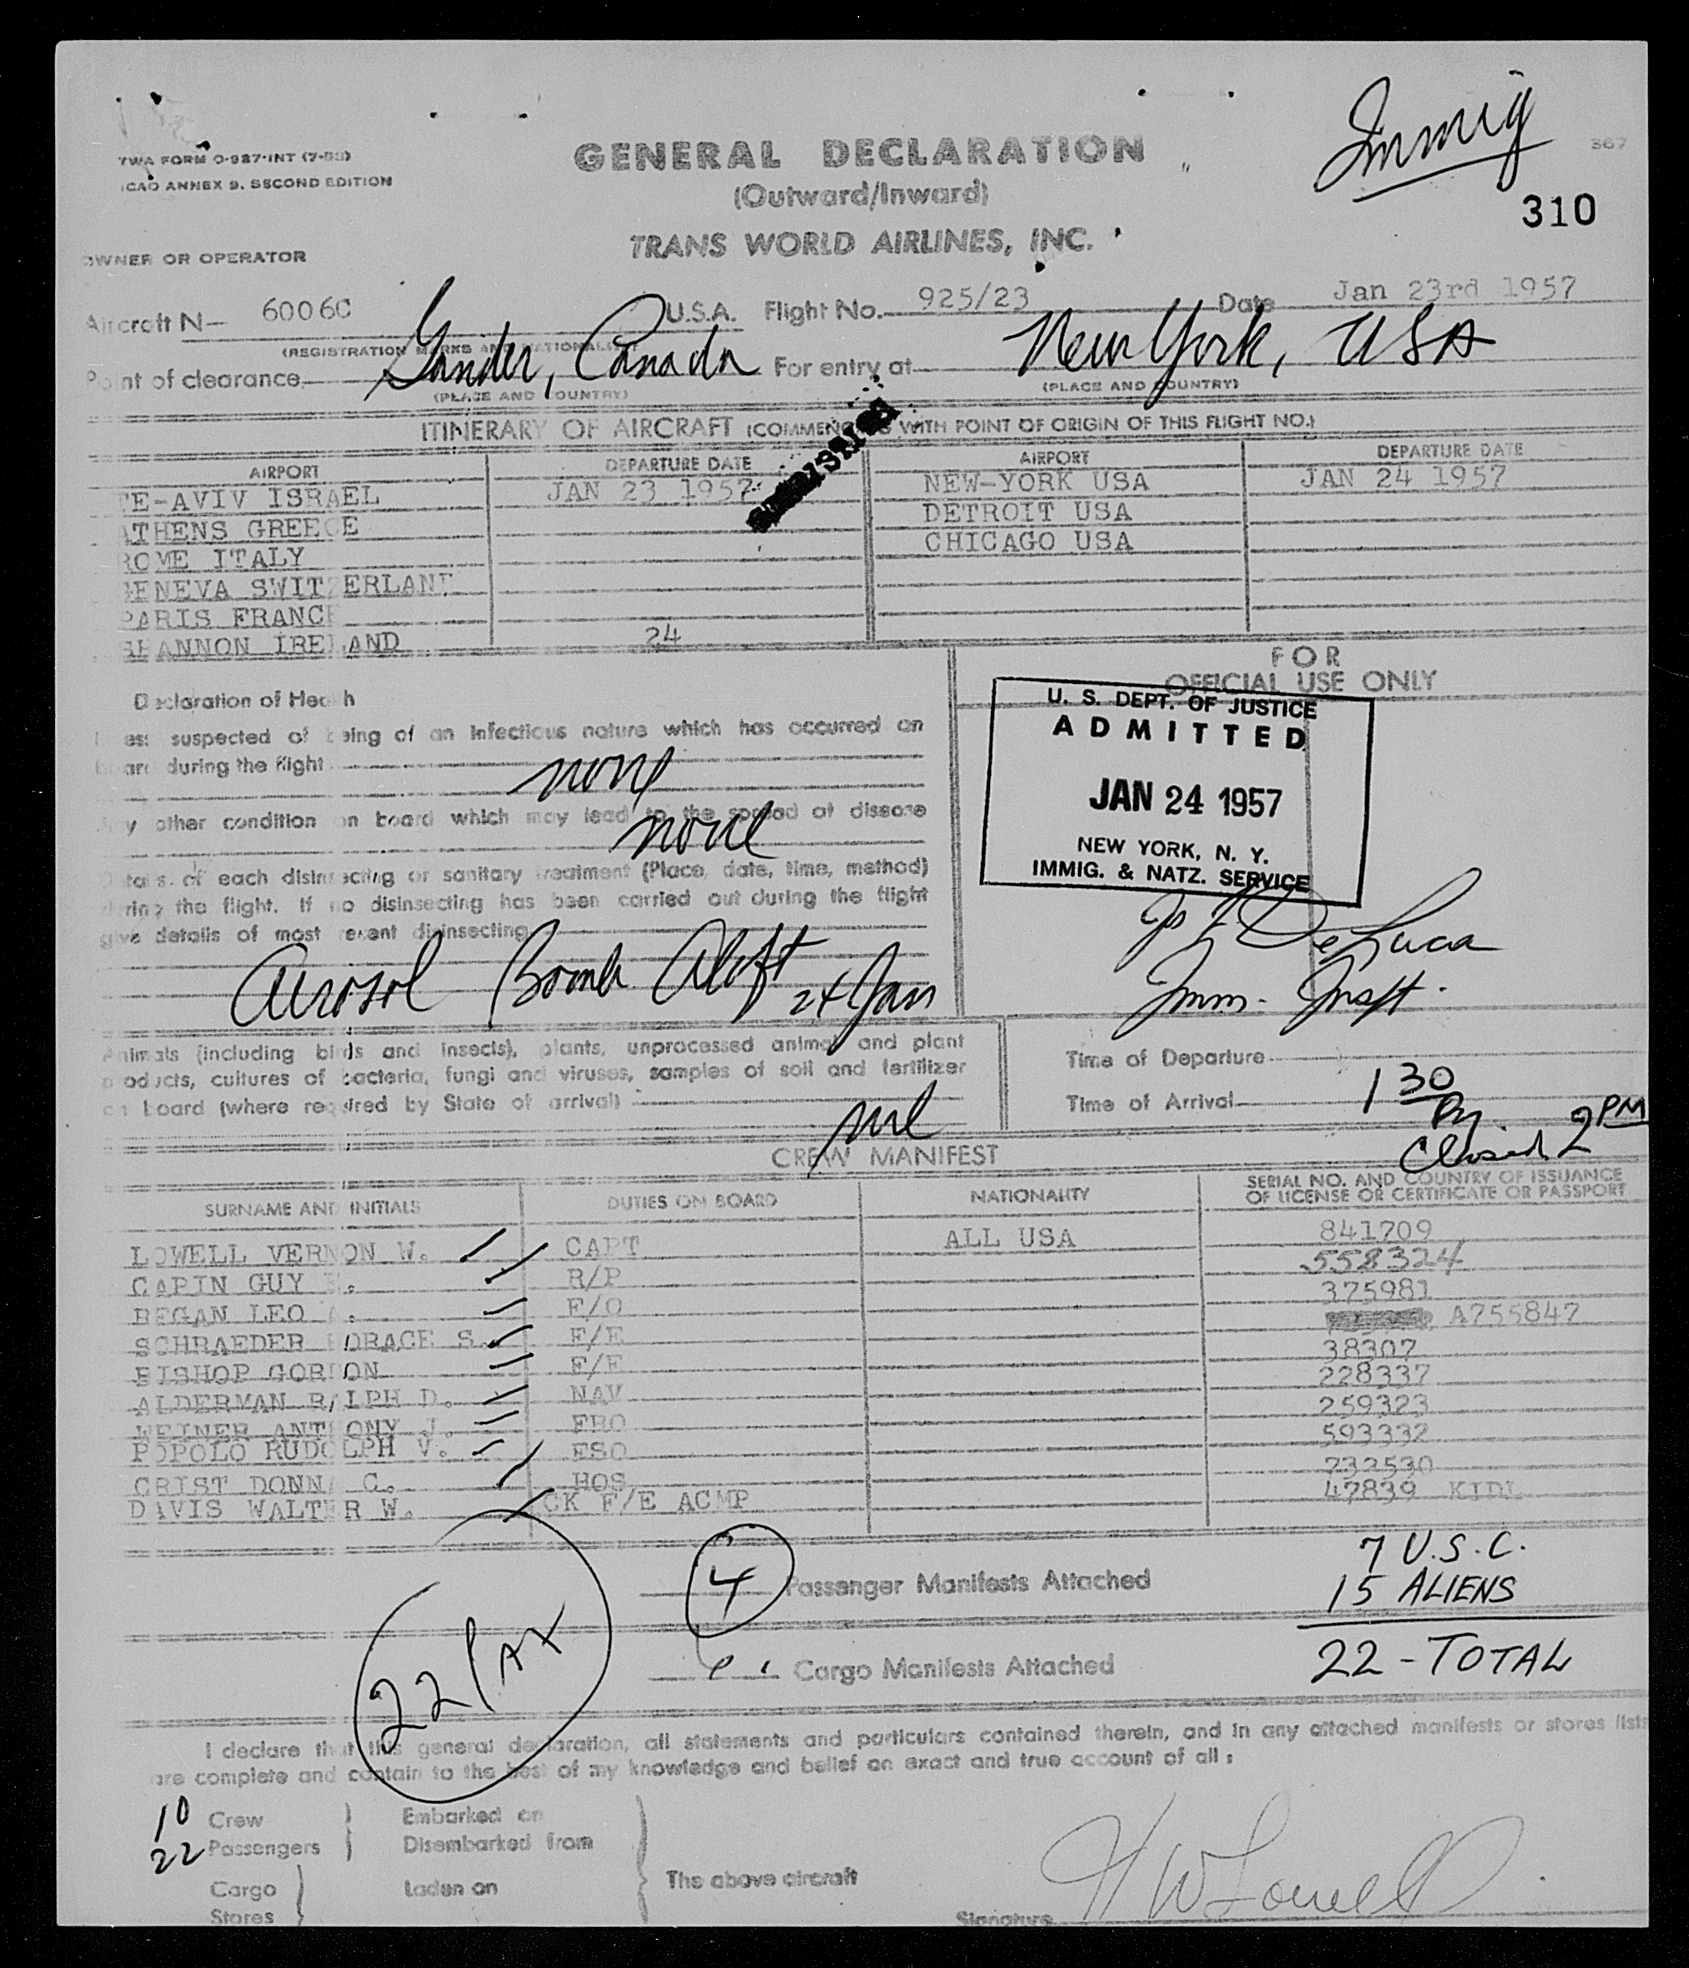 Immig
367
TWA FORM O-987-INT (7-53)
ICAO ANNEX 9, SECOND EDITION
GENERAL DECLARATION
(Outward/Inward)
310
TRANS WORLD AIRLINES, INC.
OWNER OR OPERATOR
Aircraft N- 6006C U.S.A. Flight No. 925/23 Date Jan 23rd 1957
(REGISTRATION MARKS AND NATIONALITY)
Point of clearance Gander, Canada For entry at New York, USA
(PLACE AND COUNTRY) (PLACE AND COUNTRY)
ITINERARY OF AIRCRAFT (COMMENCING WITH POINT OF ORIGIN OF THIS FLIGHT NO.)
AIRPORT DEPARTURE DATE AIRPORT DEPARTURE DATE
TE-AVIV ISRAEL JAN 23 1957 NEW-YORK USA JAN 24 1957
ATHENS GREECE DETROIT USA
ROME ITALY CHICAGO USA
GENEVA SWITZERLAND
PARIS FRANCE
SHANNON IRELAND 24
FOR
OFFICIAL USE ONLY
U. S. DEPT. OF JUSTICE
ADMITTED
JAN 24 1957
NEW YORK, N. Y.
IMMIG. & NATZ. SERVICE
De Lucia
Imm. Inspt.
Declaration of Health
Illness suspected of being of an infectious nature which has occurred on
board during the flight
none
Any other condition on board which may lead to the spread of disease
none
Details of each disinsecting or sanitary treatment (Place, date, time, method)
during the flight. If no disinsecting has been carried out during the flight
give details of most recent disinsecting
Aerosol Bomb Aloft 24 Jan
Animals (including birds and insects), plants, unprocessed animal and plant
products, cultures of bacteria, fungi and viruses, samples of soil and fertilizer
on board (where required by State of arrival)
nil
Time of Departure
Time of Arrival 1 30 Pm
Closed 2 PM
CREW MANIFEST
SURNAME AND INITIALS DUTIES ON BOARD NATIONALITY SERIAL NO. AND COUNTRY OF ISSUANCE
OF LICENSE OR CERTIFICATE OR PASSPORT
LOWELL VERNON W. CAPT ALL USA 841709
CAPIN GUY R/P 558324
REGAN LEO F/O 375981
SCHRAEDER HORACE S. F/E A755847
BISHOP GORDON F/E 38307
ALDERMAN RALPH D. NAV 228337
WEINER ANTHONY J. FRO 259323
POPOLO RUDOLPH V. FSO 593332
CRIST DONNA C. HOS 733530
DAVIS WALTER W. CK F/E ACMP 47839
4 Passenger Manifests Attached
7 U.S.C.
15 ALIENS
22 - TOTAL
22 PAX
Cargo Manifests Attached
I declare that this general declaration, all statements and particulars contained therein, and in any attached manifests or stores lists
are complete and contain to the best of my knowledge and belief an exact and true account of all:
10 Crew Embarked on
22 Passengers Disembarked from
Cargo Laden on The above aircraft
Stores
Signature VW Lowell